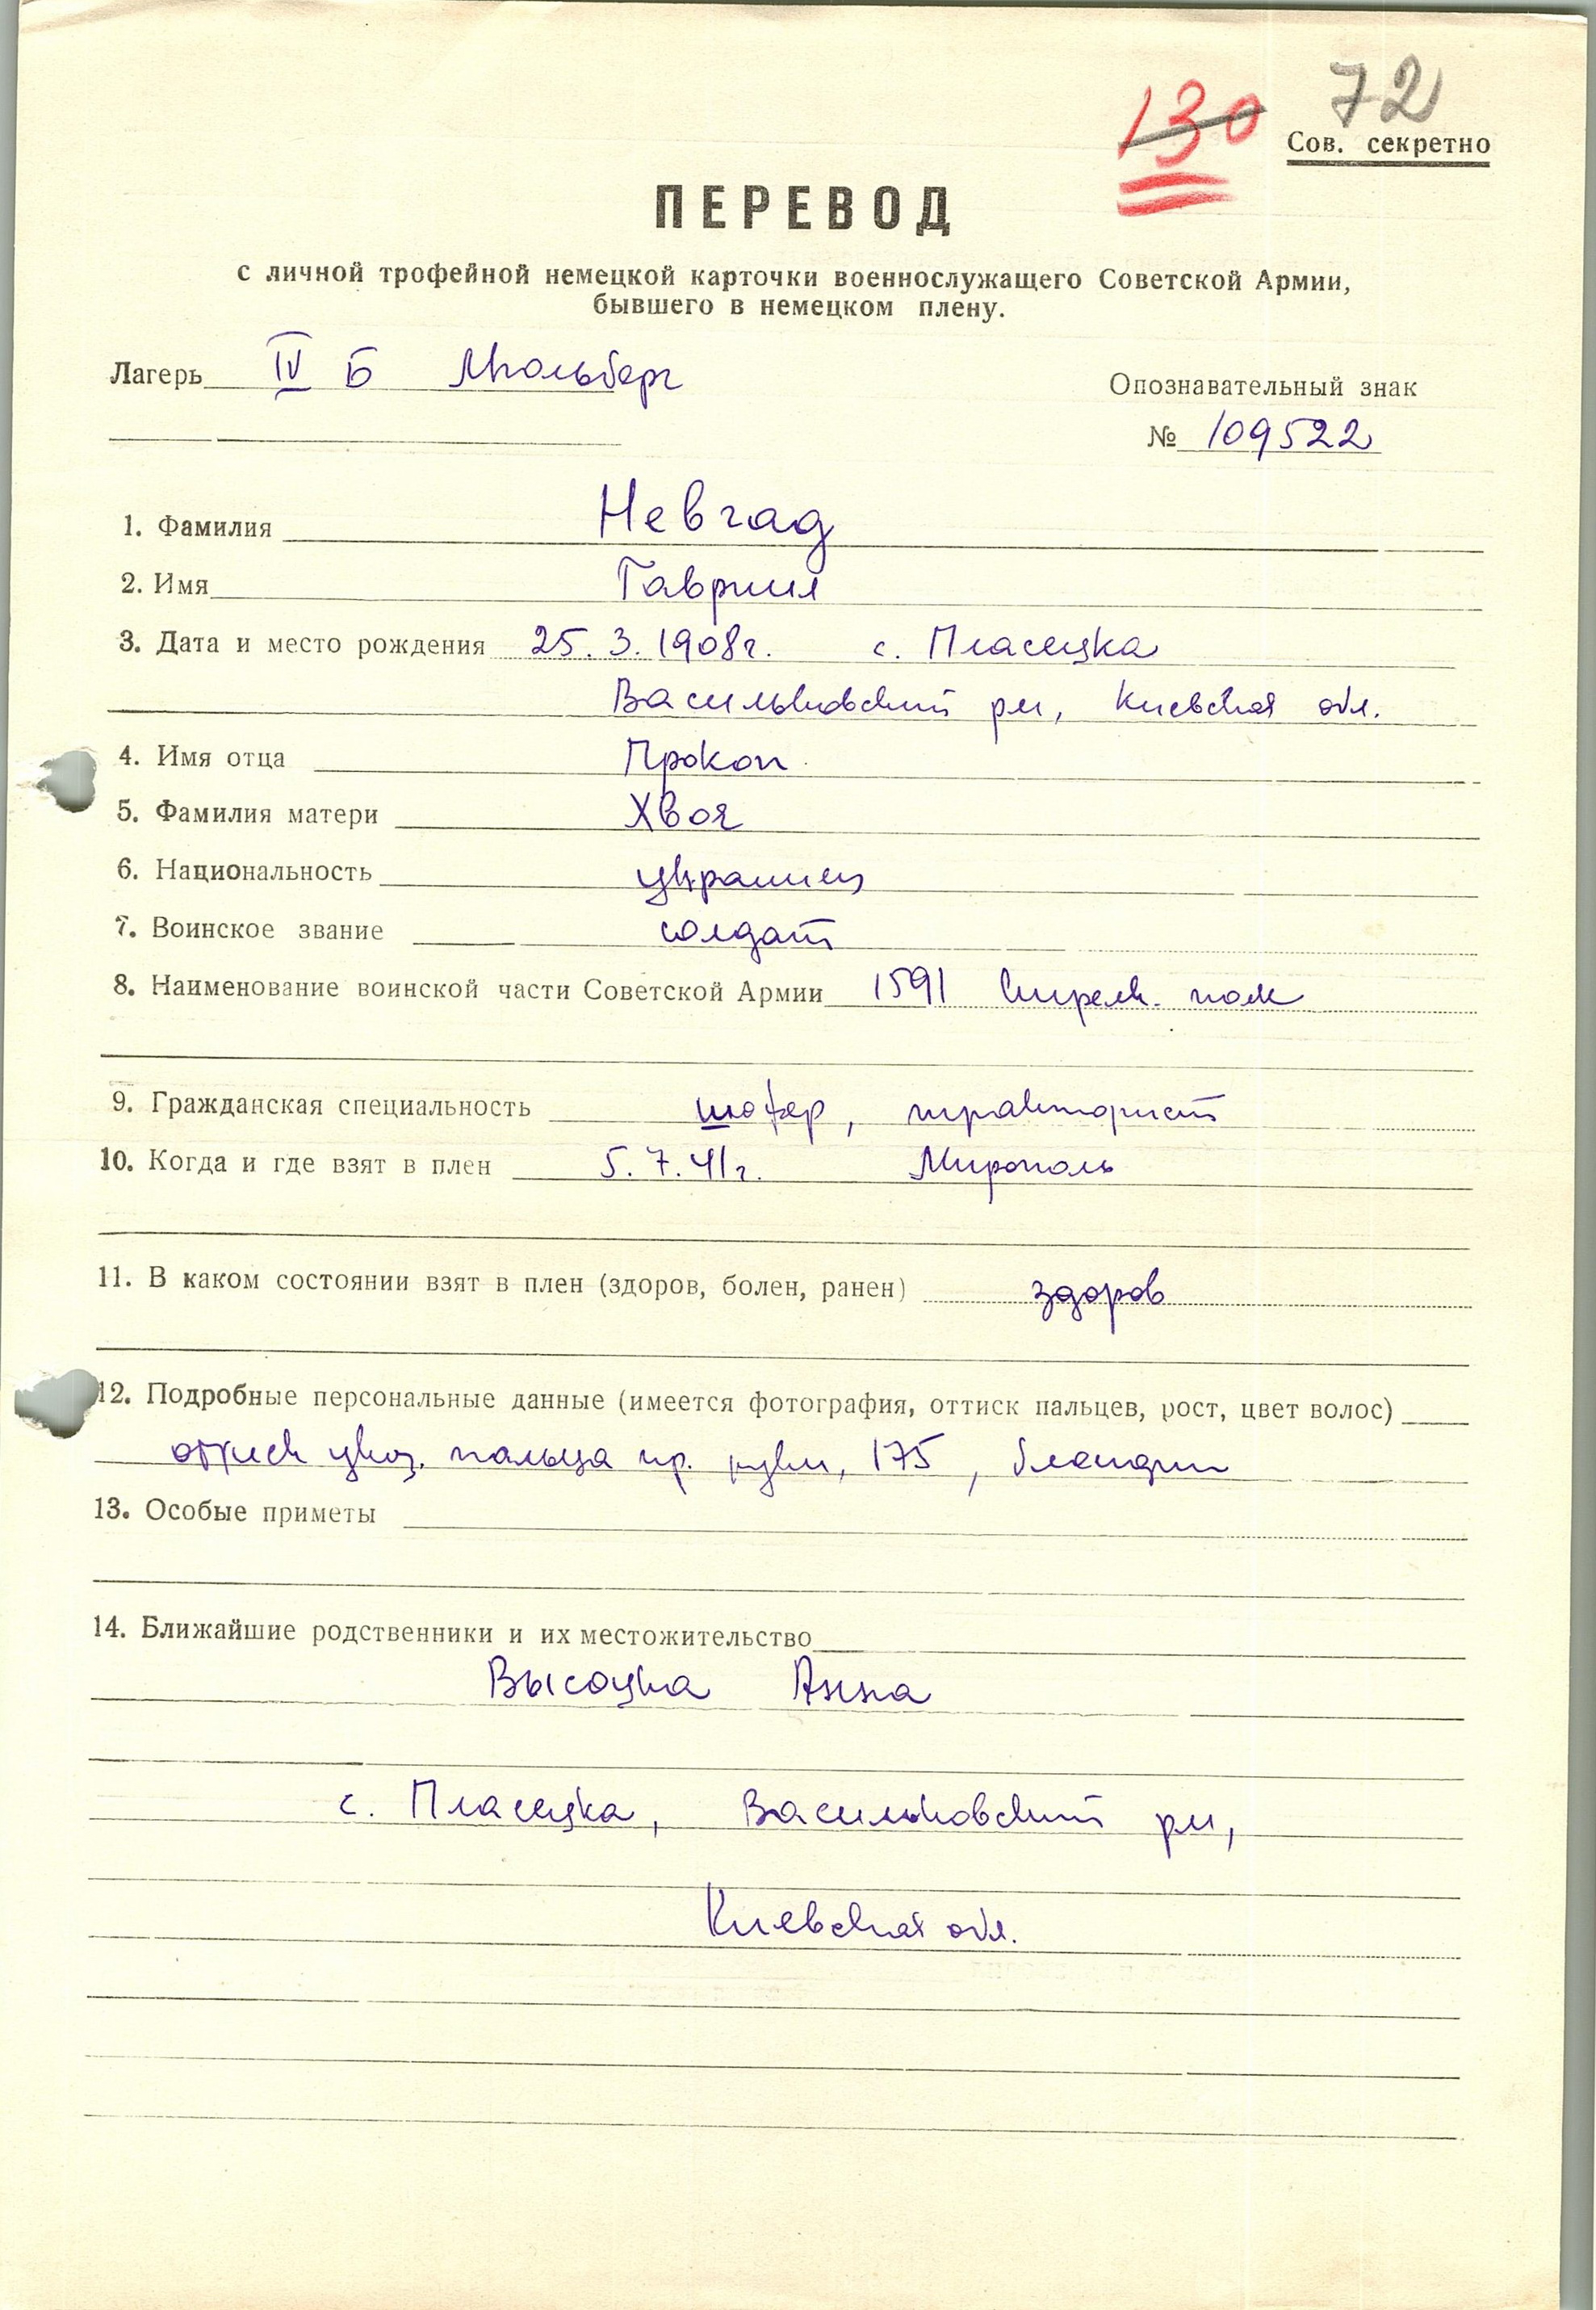 130 72
Сов. секретно
ПЕРЕВОД
с личной трофейной немецкой карточки военнослужащего Советской Армии,
бывшего в немецком плену.
Лагерь IV Б Мюльберг
Опознавательный знак
№ 109522
1. Фамилия Невгад
2. Имя Гавриил
3. Дата и место рождения 25. 3. 1908г. с. Пласецка
Васильковский р-н, Киевская обл.
4. Имя отца Прокоп
5. Фамилия матери Хвоя
6. Национальность украинец
7. Воинское звание солдат
8. Наименование воинской части Советской Армии 1591 стрелк. полк
9. Гражданская специальность шофер, тракторист
10. Когда и где взят в плен 5. 7. 41г. Мирополь
11. В каком состоянии взят в плен (здоров, болен, ранен) здоров
12. Подробные персональные данные (имеется фотография, оттиск пальцев, рост, цвет волос)
оттиск указ. пальца пр. руки, 175, блондин
13. Особые приметы
14. Ближайшие родственники и их местожительство
Высоцка Анна
с. Пласецка, Васильковский р-н,
Киевская обл.